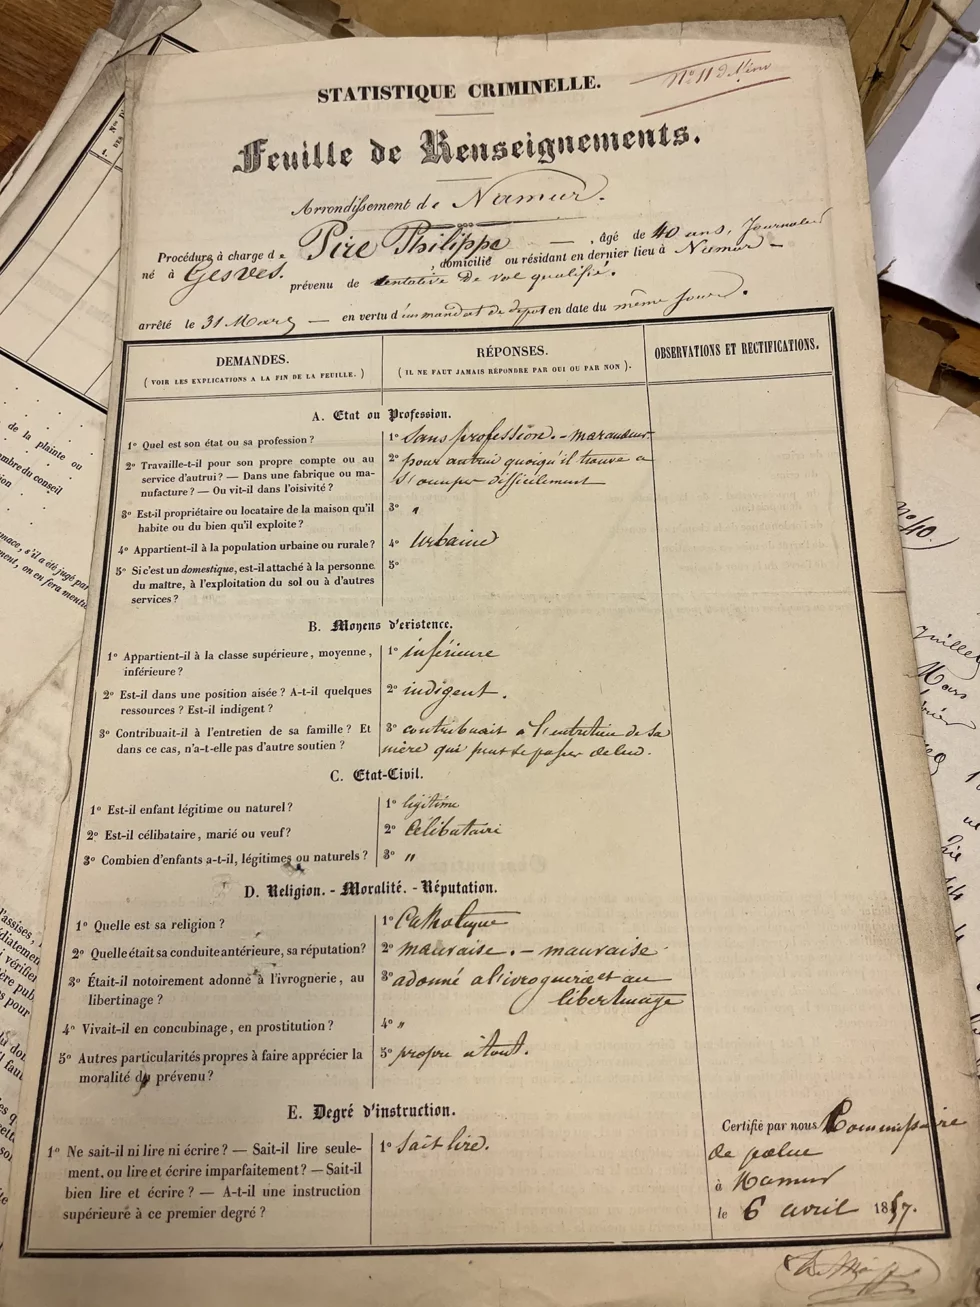 STATISTIQUE CRIMINELLE.
Feuille de Renseignements.
Arrondissement de Namur.
Procédure à charge de Pire Philippe — , âgé de 40 ans, Journalier
né à Gesves. , domicilié ou résidant en dernier lieu à Namur —
prévenu de tentative de vol qualifié.
arrêté le 31 Mars — en vertu d'un mandat de depot en date du même jour.
DEMANDES.
(VOIR LES EXPLICATIONS A LA FIN DE LA FEUILLE.)
RÉPONSES.
(IL NE FAUT JAMAIS RÉPONDRE PAR OUI OU PAR NON).
OBSERVATIONS ET RECTIFICATIONS.
A. Etat ou Profession.
1° Quel est son état ou sa profession ?
1° Sans profession. - maraudeur
2° Travaille-t-il pour son propre compte ou au
service d'autrui ? — Dans une fabrique ou ma-
nufacture ? — Ou vit-il dans l'oisivité ?
2° pour autrui quoiqu'il trouve a
s'occuper difficilement
3° Est-il propriétaire ou locataire de la maison qu'il
habite ou du bien qu'il exploite ?
3° "
4° Appartient-il à la population urbaine ou rurale ?
4° Urbaine
5° Si c'est un domestique, est-il attaché à la personne
du maître, à l'exploitation du sol ou à d'autres
services ?
5°
B. Moyens d'existence.
1° Appartient-il à la classe supérieure, moyenne,
inférieure ?
1° inférieure
2° Est-il dans une position aisée ? A-t-il quelques
ressources ? Est-il indigent ?
2° indigent.
3° Contribuait-il à l'entretien de sa famille ? Et
dans ce cas, n'a-t-elle pas d'autre soutien ?
3° contribuait à l'entretien de sa
mère qui peut se passer de lui.
C. Etat-Civil.
1° Est-il enfant légitime ou naturel ?
1° légitime
2° Est-il célibataire, marié ou veuf ?
2° Célibataire
3° Combien d'enfants a-t-il, légitimes ou naturels ?
3° "
D. Religion. - Moralité. - Réputation.
1° Quelle est sa religion ?
1° Catholique
2° Quelle était sa conduite antérieure, sa réputation ?
2° mauvaise. - mauvaise
3° Était-il notoirement adonné à l'ivrognerie, au
libertinage ?
3° adonné a l'ivrognerie et au
libertinage
4° Vivait-il en concubinage, en prostitution ?
4° "
5° Autres particularités propres à faire apprécier la
moralité du prévenu ?
5° propre à tout.
E. Degré d'instruction.
1° Ne sait-il ni lire ni écrire ? — Sait-il lire seule-
ment, ou lire et écrire imparfaitement ? — Sait-il
bien lire et écrire ? — A-t-il une instruction
supérieure à ce premier degré ?
1° Sait lire.
Certifié par nous Commissaire
de police
à Namur
le 6 avril 1857.
de la plainte ou